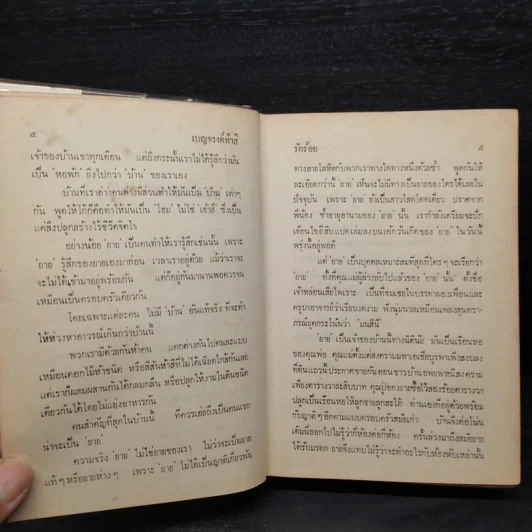 ๔ เบญจรงค์ห้าสี
เจ้าของบ้านเขาทุกเดือน แต่ถึงกระนั้นเราก็ไม่ได้รู้สึกว่ามัน
เป็น 'หอพัก' ยิ่งไปกว่า 'บ้าน' ของเราเอง
บ้านที่เราต่างคนต่างมีส่วนทำให้มันเป็น 'บ้าน' เท่าๆ
กัน พูดให้โก้ก็คือทำให้มันเป็น 'โฮม' ไม่ใช่ 'เฮ้าส์' ซึ่งเป็น
แค่สิ่งปลูกสร้างไร้ชีวิตจิตใจ
อย่างน้อย 'ยาย' เป็นคนทำให้เรารู้สึกเช่นนั้น เพราะ
'ยาย' รู้สึกของยายเองมาก่อน เวลาเราอยู่ด้วย แม้ว่าเราจะ
จะไม่ได้เข้ามาอยู่พร้อมกัน แต่ก็อยู่กันมานานพอควรจน
เหมือนเป็นครอบครัวเดียวกัน
โดยเฉพาะแต่ละคน ไม่มี 'บ้าน' อันแท้จริง ที่จะทำ
ให้ห่วงหาอาวรณ์เกินกว่าบ้านนี้
พวกเรามีด้วยกันห้าคน แตกต่างกันไปคนละแบบ
เหมือนดอกไม้ห้าชนิด หรือสีสันห้าสีที่ไม่ได้เฉียดใกล้กันเลย
แต่เราก็ผสมผสานกันได้กลมกลืน หรือปลูกให้งามในดินชนิด
เดียวกันได้โดยไม่แย่งอาหารกัน
คนสำคัญที่สุดในบ้านนี้ ที่ควรเอ่ยถึงเป็นคนแรก
น่าจะเป็น 'ยาย'
ความจริง 'ยาย' ไม่ใช่ยายของเรา ไม่ว่าจะเป็นยาย
แท้ๆ หรือยายห่างๆ เพราะ 'ยาย' ไม่ได้เป็นญาติเกี่ยวพัน
รักร้อย ๕
ทางสายโลหิตกับพวกเราทางใดทางหนึ่งด้วยซ้ำ พูดกันให้
ละเอียดกว่านี้ 'ยาย' เห็นจะไม่มีทางเป็นยายของใครได้เลยใน
ปัจจุบัน เพราะ 'ยาย' ยังเป็นสาวโสดโดดเดี่ยว ปราศจาก
พี่น้อง ซ้ำอายุอานามของ 'ยาย' นั้น เรากำลังเตรียมจะปัก
เทียนไขยี่สิบแปดเล่มลงบนเค้กวันเกิดของ 'ยาย' ในวันนี้
พรุ่งนี้อยู่พอดี
แต่ 'ยาย' เป็นบุคคลเหมาะสมที่สุดที่ใครๆ จะเรียกว่า
'ยาย' ทั้งที่คุณแม่ผู้ล่วงลับไปแล้วของ 'ยาย' นั้น ตั้งชื่อ
เจ้าหล่อนเสียไพเราะ เป็นที่ชมเชยในบรรดาผองเพื่อนและ
ครูบาอาจารย์ว่าเรืองบงงาม ฟังนุ่มนวลเหมือนเพลงสุนทรา-
ภรณ์ยุคกระโน้นว่า 'มนสินี'
'ยาย' เป็นเจ้าของบ้านที่ทางนี้ดินนี้ มันเป็นเรือนหอ
ของคุณพ่อ คุณแม่ตั้งแต่สงครามมหาเอเชียบูรพาเพิ่งสงบลง
ที่ดินแถวนี้ประกาศขายกันตอนชาวบ้านอพยพหนีสงคราม
เพียงตารางวาละสิบบาท คุณปู่ของยายซื้อไว้สองร้อยตารางวา
ปลูกเป็นเรือนหอให้ลูกชายลูกสะใภ้ ท่านเองก็อยู่ด้วยพร้อม
กับญาติๆ อีกตามแบบครอบครัวสมัยเก่า บ้านจึงต่อโน่น
เติมนี่ออกไปไม่รู้ว่ากี่ห้องต่อกี่ห้อง ครั้นล่วงมาถึงสมัยยาย
ได้รับมรดก ยายจึงแทบไม่รู้ว่าจะทำอะไรกับห้องหับเหล่านั้น